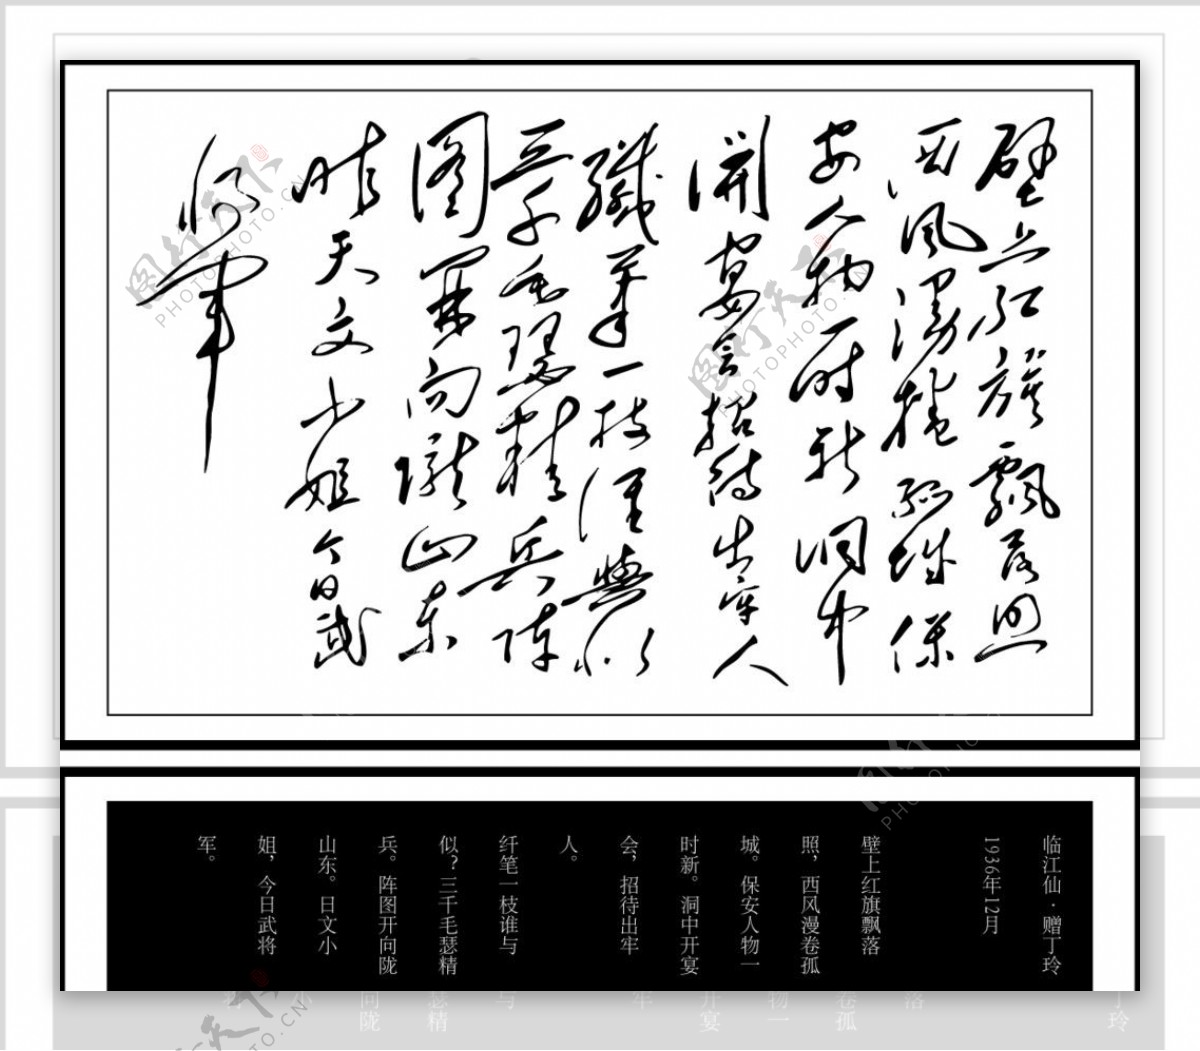 壁上红旗飄落照
西風漫捲孤城保
安人物一时新洞中
開宴会招待出牢人
纖筆一枝谁與似
三千毛瑟精兵陣
图開向隴山東
昨天文小姐今日武
将軍
临江仙·赠丁玲
1936年12月
壁上红旗飘落
照，西风漫卷孤
城。保安人物一
时新。洞中开宴
会，招待出牢
人。
纤笔一枝谁与
似？三千毛瑟精
兵。阵图开向陇
山东。日文小
姐，今日武将
军。
丁玲
落
卷孤
物一
开宴
牢
与
瑟精
向陇
小
图行天下
PHOTO.CN